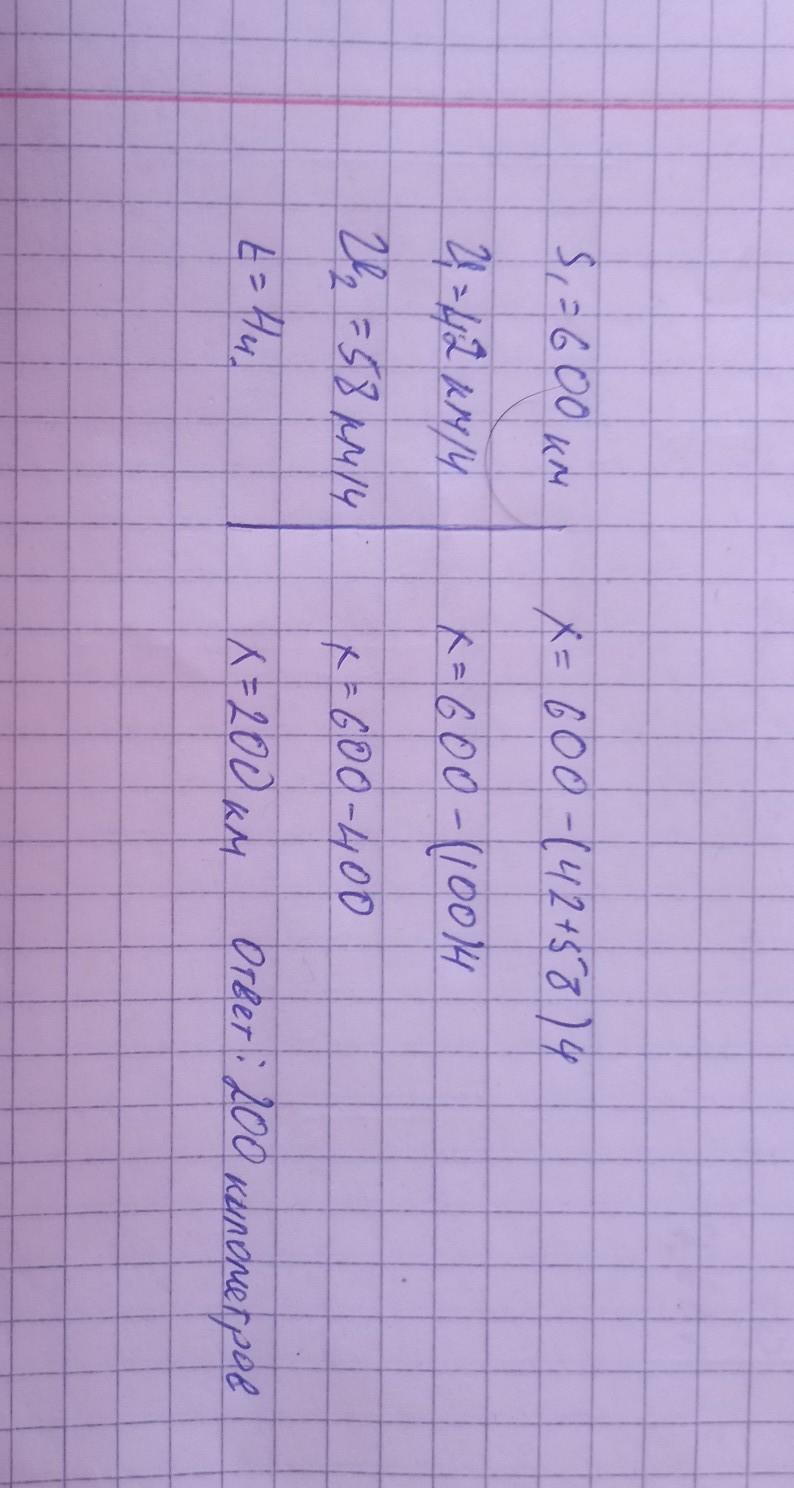 S₁ = 600 км
υ₁ = 42 км/ч
υ₂ = 58 км/ч
t = 4ч.
x = 600 - (42+58)4
x = 600 - (100)4
x = 600 - 400
x = 200 км Ответ: 200 километров